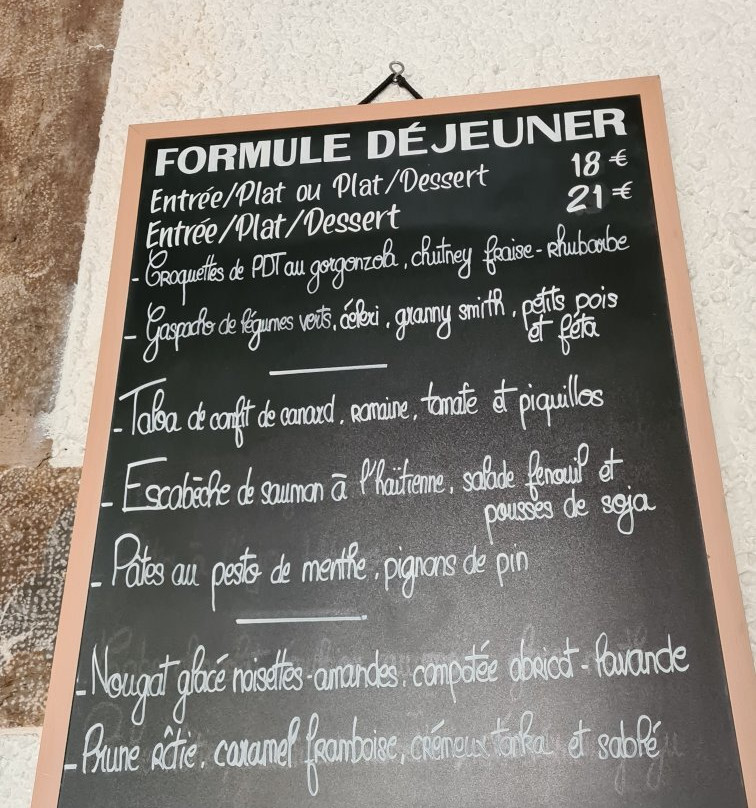 FORMULE DÉJEUNER
Entrée/Plat ou Plat/Dessert 18 €
Entrée/Plat/Dessert 21 €
- Croquettes de PDT au gorgonzola, chutney fraise-rhubarbe
- Gaspacho de légumes verts, céleri, granny smith, petits pois
et féta
- Taloa de confit de canard, romaine, tomate et piquillos
- Escabèche de saumon à l'haïtienne, salade fenouil et
pousses de soja
- Pâtes au pesto de menthe, pignons de pin
- Nougat glacé noisettes-amandes, compotée abricot-lavande
- Prune rôtie, caramel framboise, crémeux tonka et sablé